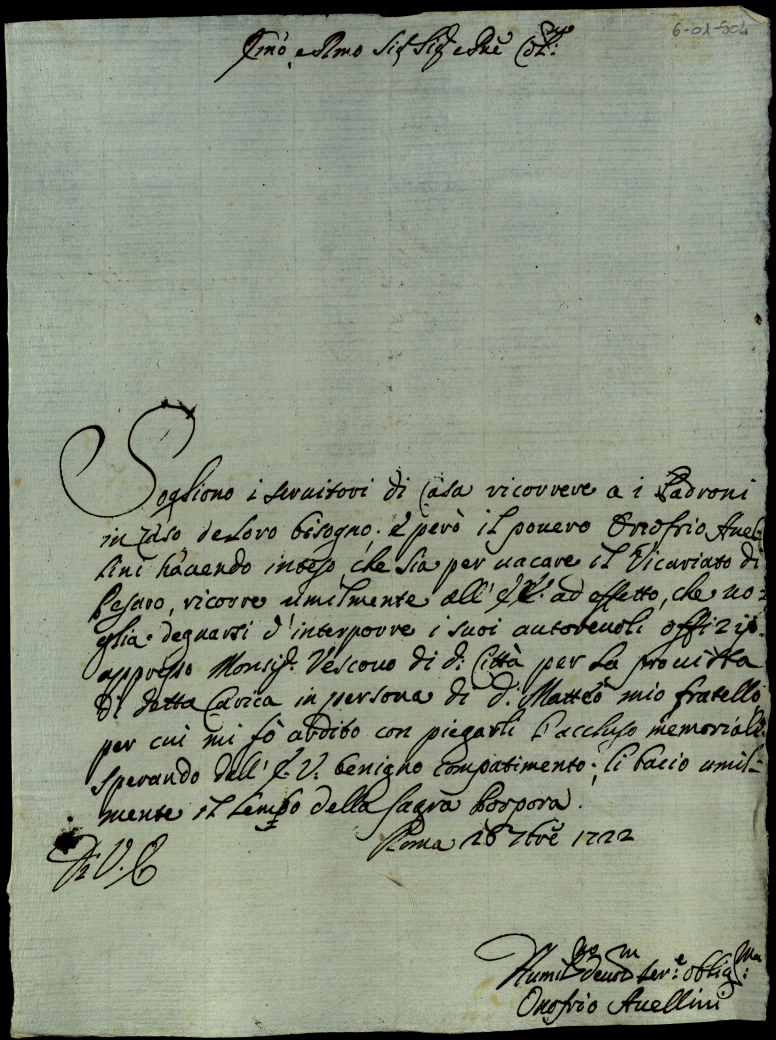 6-01-504
Em̃o e Rmo Sig.r Sig.r e Prñe Col.mo
Sogliono i seruitori di Casa ricorrere a i Padroni
in caso de loro bisogno; e però il pouero Onofrio Auel-
lini hauendo inteso, che sia per uacare il Vicariato di
Pesaro, ricorre umilmente all' E. V. ad effetto, che uo-
glia degnarsi d'interporre i suoi autoreuoli offizij
appresso Monsig.r Vescouo di d.a Città per la prouista
di detta Carica in persona di D. Matteo mio fratello
per cui mi fò ardito con piegarli l'accluso memoriale
sperando dall' E. V. benigno compatimento; li bacio umil-
mente il lembo della sagra Porpora.
Roma 26 7bre 1722
Di V. E.
Humil.mo deuot.m ser.e oblig.ma
Onofrio Auellini